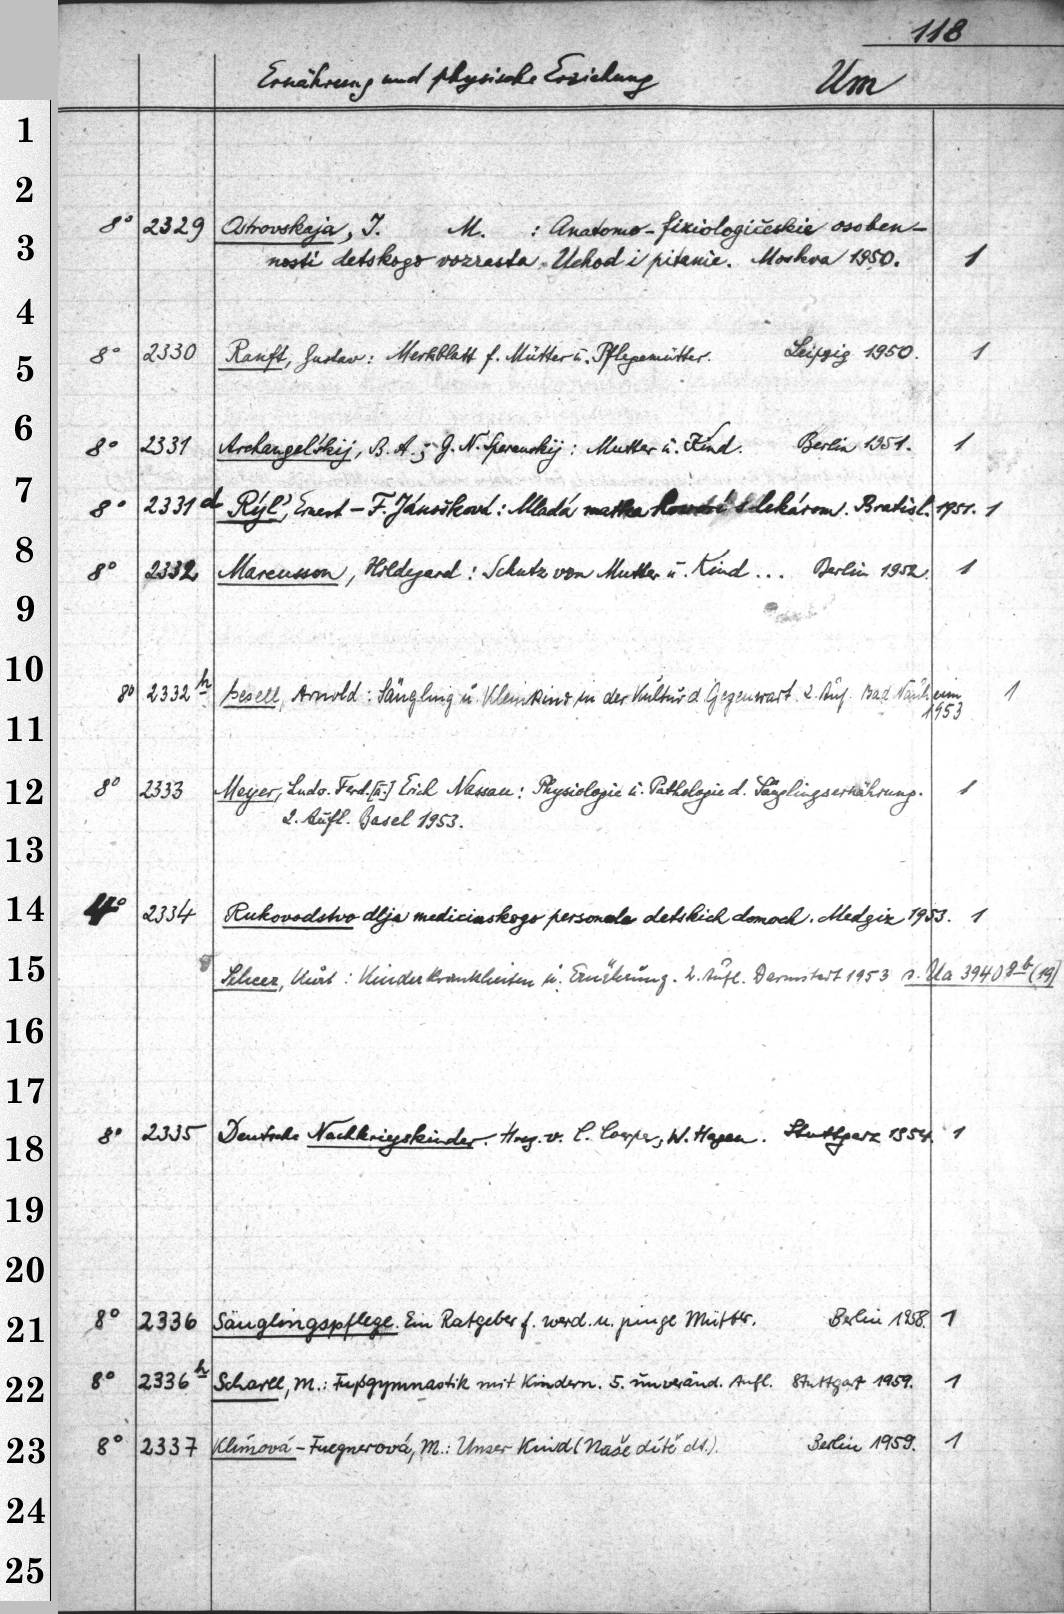 118
Ernährung und physische Erziehung Um
1
2
3
4
5
6
7
8
9
10
11
12
13
14
15
16
17
18
19
20
21
22
23
24
25
8° 2329 Ostrovskaja, I. M. : Anatomo-fiziologičeskie osoben-
nosti detskogo vozrasta. Uchod i pitanie. Moskva 1950. 1
8° 2330 Ranft, Gustav: Merkblatt f. Mütter u. Pflegemütter. Leipzig 1950. 1
8° 2331 Archangel'skij, B. A. ; G. N. Speranskij: Mutter u. Kind. Berlin 1951. 1
8° 2331 d Rýl', Ernest - F. Jánošková: Mladá matka hovorí s lekárom. Bratisl. 1951. 1
8° 2332 Marcusson, Hildegard: Schutz von Mutter u. Kind ... Berlin 1952. 1
8° 2332 h Gesell, Arnold: Säugling u. Kleinkind in der Kultur d. Gegenwart. 2. Aufl. Bad Nauheim 1
1953
8° 2333 Meyer, Ludw. Ferd. [u.] Erich Nassau: Physiologie u. Pathologie d. Säuglingsernährung. 1
2. Aufl. Basel 1953.
4° 2334 Rukovodstvo dlja medicinskogo personala detskich domoch. Medgiz 1953. 1
Scheer, Kurt: Kinderkrankheiten u. Ernährung. 2. Aufl. Darmstadt 1953 s. Ua 3940 8 b (19)
8° 2335 Deutsche Nachkriegskinder. Hrsg. v. C. Coerper, W. Hagen. Stuttgart 1954. 1
8° 2336 Säuglingspflege. Ein Ratgeber f. werd. u. junge Mütter. Berlin 1958. 1
8° 2336 h Scharll, M.: Fußgymnastik mit Kindern. 5. unveränd. Aufl. Stuttgart 1959. 1
8° 2337 Klímová-Fuegnerová, M.: Unser Kind (Naše dítě dt.). Berlin 1959. 1